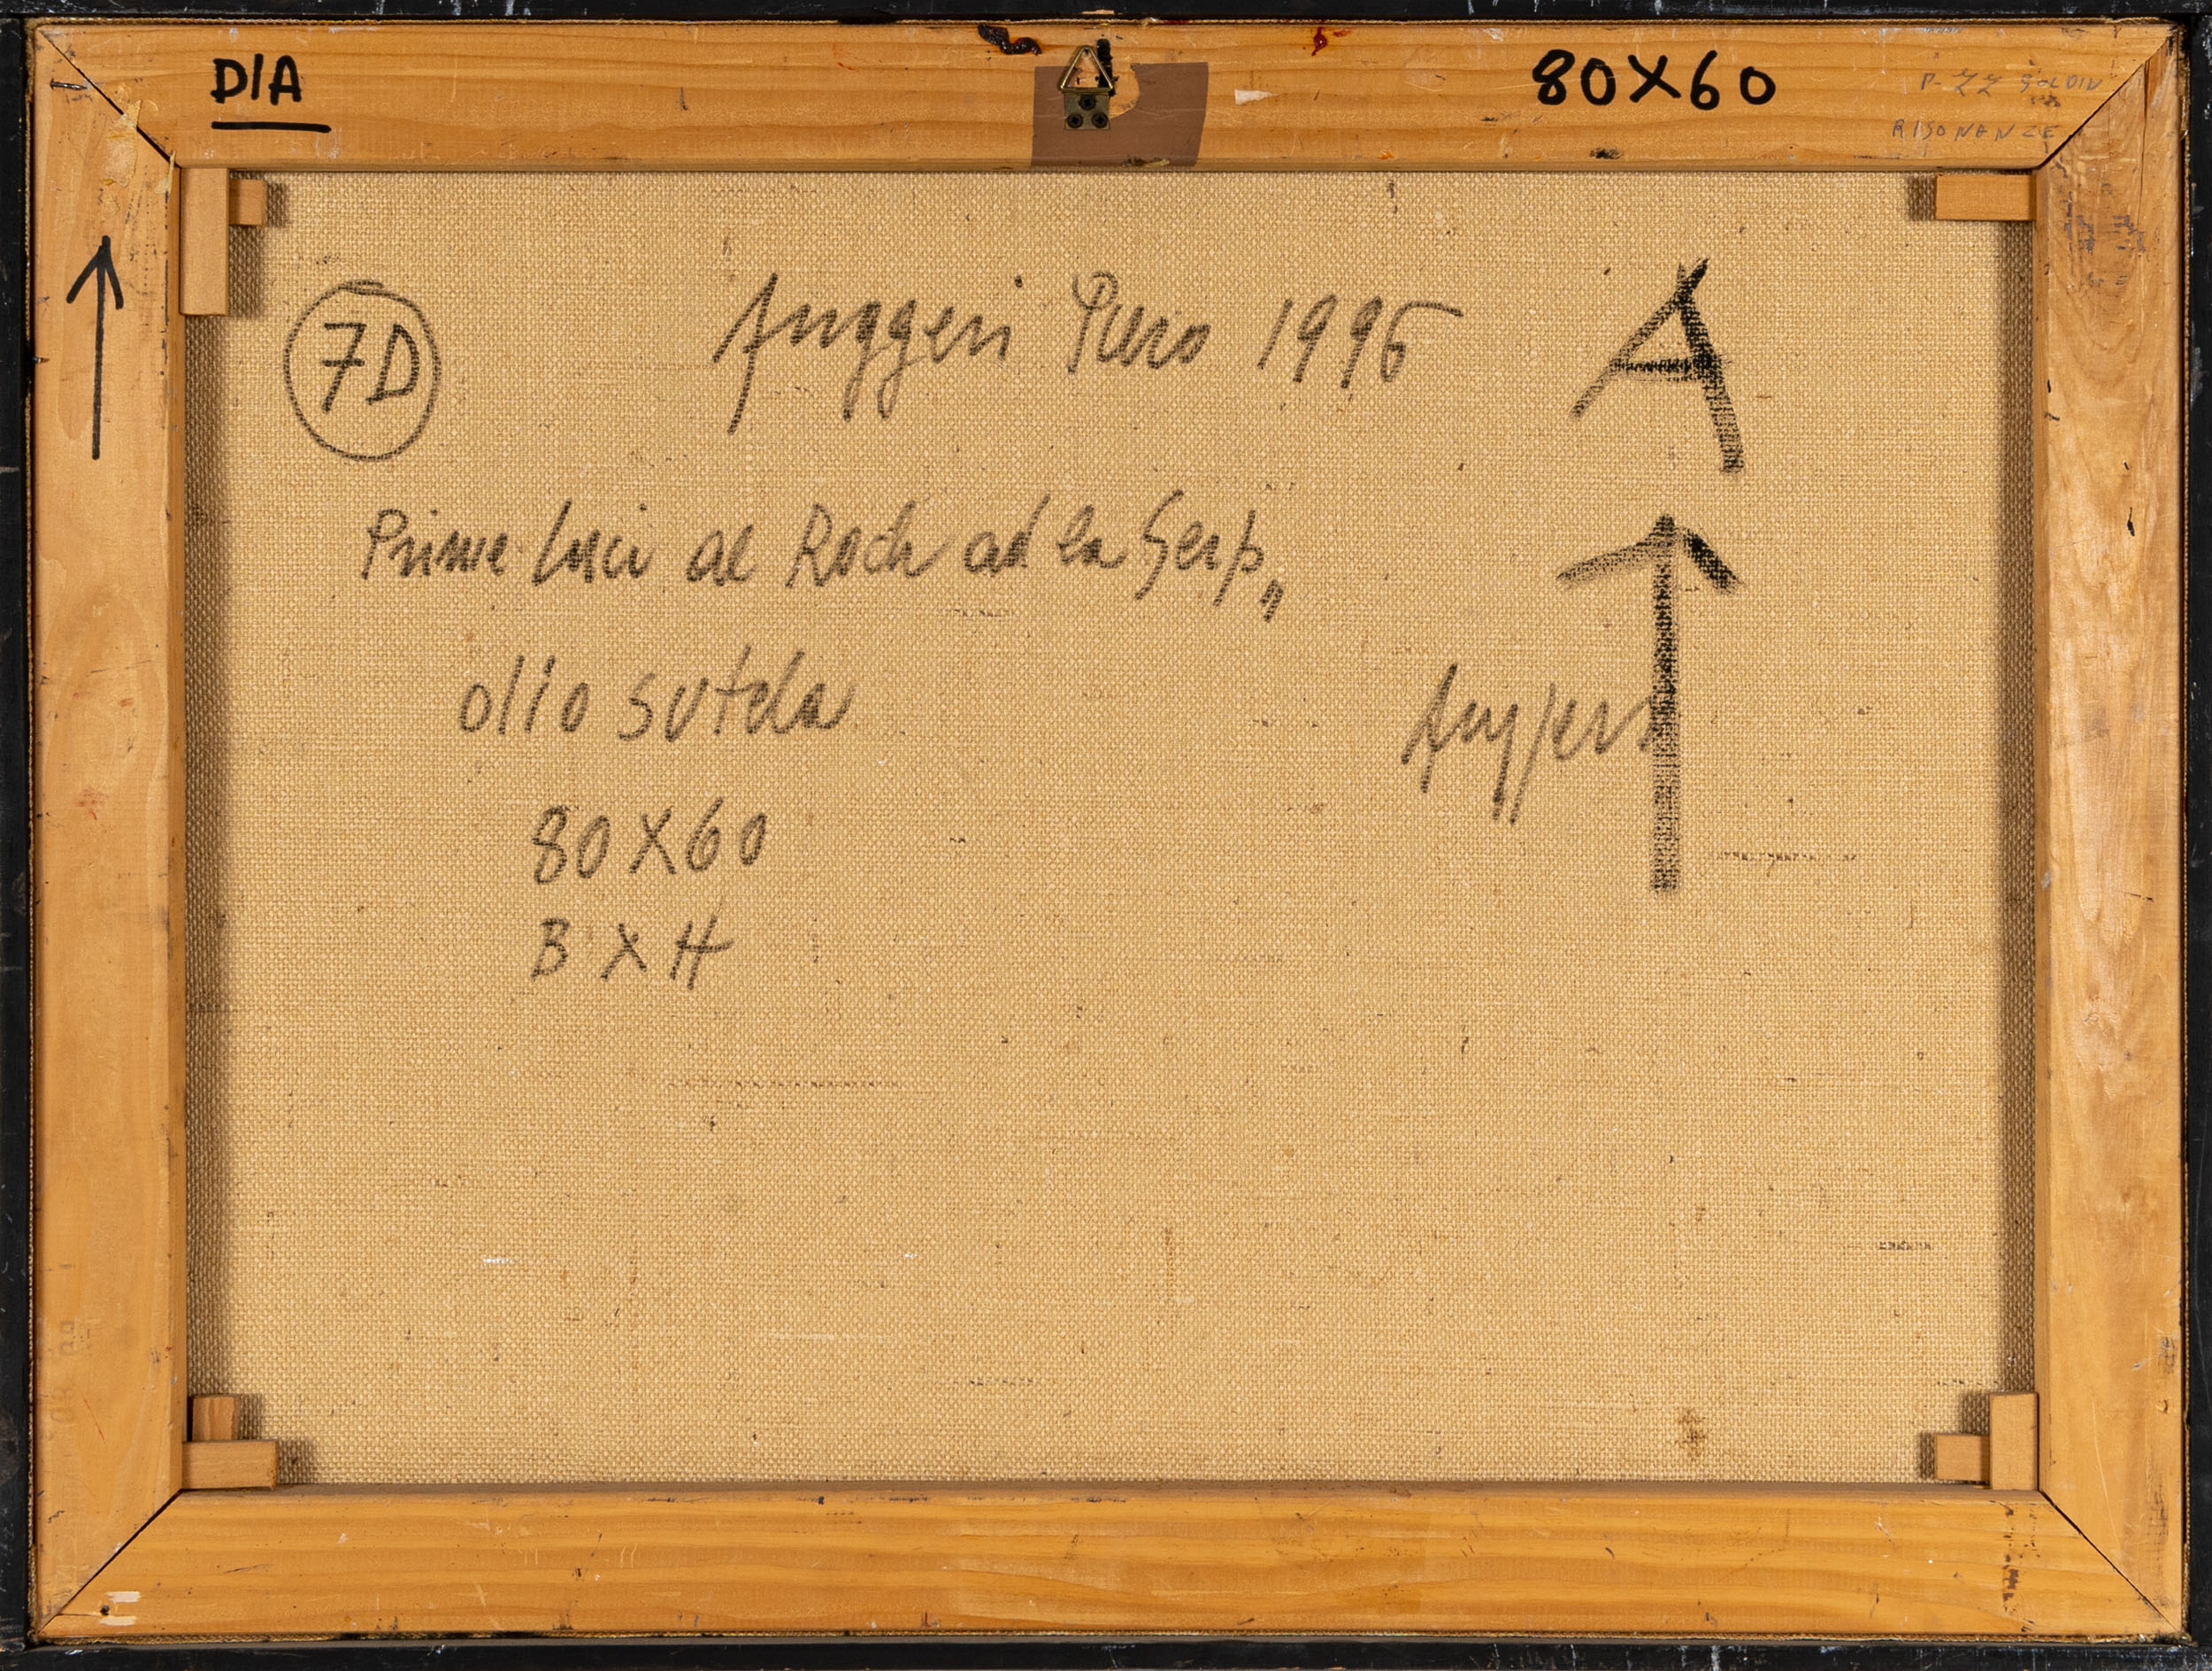 DIA
80X60
RISONANZE
7D
Ruggeri Piero 1996
Prime Luci al Roch ad la Serp„
olio su tela
Ruggeri
80X60
B X H
A